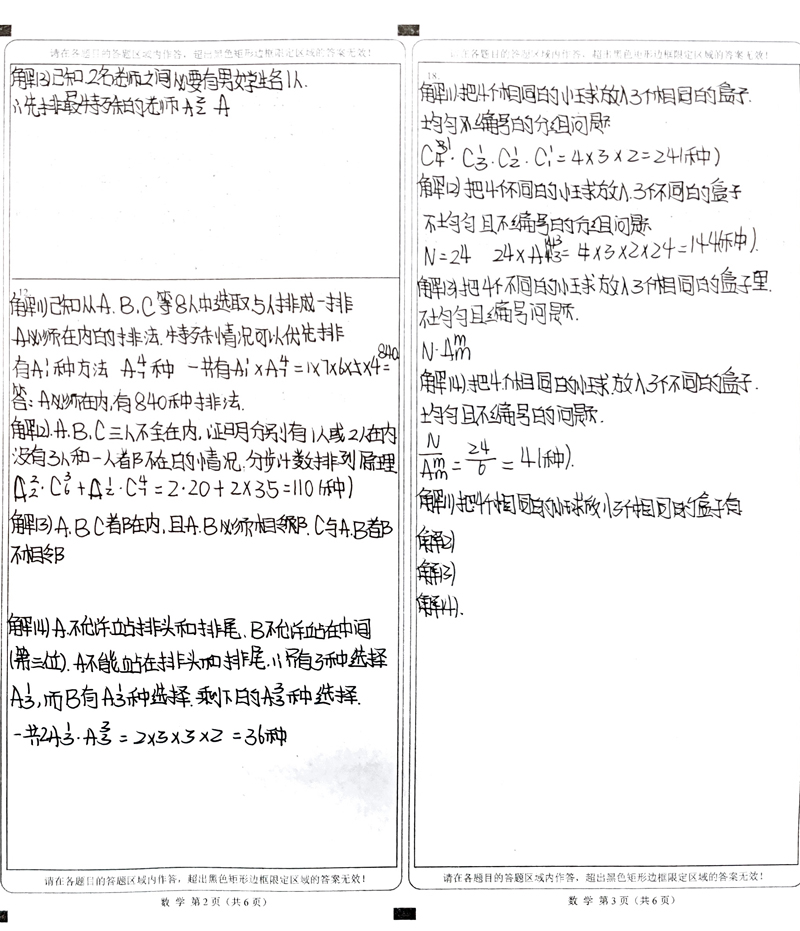 请在各题目的答题区域内作答，超出黑色矩形边框限定区域的答案无效！
解(3)已知2名老师之间必要有男女学生各1人.
∴先排最特殊的老师A₂² A
17
解(1)已知从A.B.C等8人中选取5人排成一排
A必须在内的排法.特殊情况可以优先排
有A₁¹种方法 A₇⁴种 一共有A₁¹×A₇⁴=1×7×6×5×4=840
答:A必须在内,有840种排法.
解(2).A.B.C三人不全在内,证明分别有1人或2人在内
没有3人和一人都不在的情况.分步计数排列原理
A₂²·C₆³+A₂¹·C₇⁴=2·20+2×35=110(种)
解(3)A.B.C都在内,且A.B必须相邻.C与A.B都
不相邻
解(4)A.不允许站排头和排尾.B不允许站在中间
(第三位).A不能站在排头和排尾.∴只有3种选择
A₃¹,而B有A₃¹种选择.剩下的A₃³种选择.
一共2A₃¹·A₃³=2×3×3×2=36种
请在各题目的答题区域内作答，超出黑色矩形边框限定区域的答案无效！
数 学 第 2 页（共 6 页）
请在各题目的答题区域内作答，超出黑色矩形边框限定区域的答案无效！
18.
解(1)把4个相同的小球放入3个相同的盒子.
均匀不编号的分组问题
C₄¹·C₃¹·C₂¹·C₁¹=4×3×2=24(种)
解(2)把4个不同的小球放入3个不同的盒子
不均匀且不编号的分组问题
N=24 24×A₄³=4×3×2×24=144(种).
解(3)把4个不同的小球放入3个相同的盒子里.
不均匀且编号问题.
N·Aₘᵐ
解(4)把4个相同的小球.放入3个不同的盒子.
均匀且不编号的问题.
N/Aₘᵐ=24/6=4(种).
解(1)把4个相同的小球放入3个相同的盒子有
解(2)
解(3)
解(4).
请在各题目的答题区域内作答，超出黑色矩形边框限定区域的答案无效！
数 学 第 3 页（共 6 页）